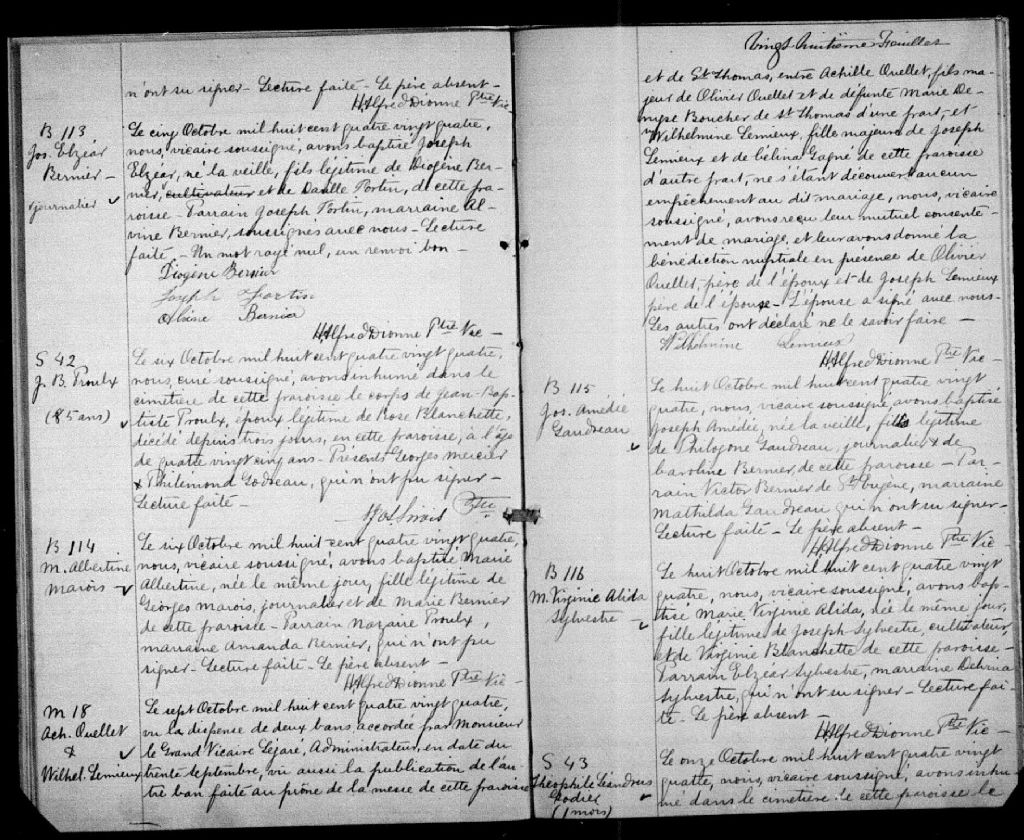 n'ont su signer - Lecture faite - Le père absent -
H Alfred Dionne Ptre Vic
B 113
Jos. Elzéar
Bernier -
journalier
Le cinq Octobre mil huit cent quatre vingt quatre,
nous, vicaire soussigné, avons baptisé Joseph
Elzéar, né la veille, fils légitime de Diogène Ber-
nier, cultivateur et de Fortin, de cette pa-
roisse - Parrain Joseph Fortin, marraine Al-
vine Bernier, soussignés avec nous - Lecture
faite - Un mot rayé nul, un renvoi bon -
Diogène Bernier
Joseph Fortin
Alvine Bernier
H Alfred Dionne Ptre Vic -
S 42
J. B. Proulx
(85 ans)
Le six Octobre mil huit cent quatre vingt quatre,
nous, curé soussigné, avons inhumé dans le
cimetière de cette paroisse le corps de Jean-Bap-
tiste Proulx, époux légitime de Rose Blanchette,
décédé depuis trois jours, en cette paroisse, à l'âge
de quatre vingt cinq ans - Présents Georges Mercier
& Philémond Godreau, qui n'ont pu signer -
Lecture faite -
Sirois Ptre
B 114
M. Albertine
Marois -
Le six Octobre mil huit cent quatre vingt quatre,
nous, vicaire soussigné, avons baptisé Marie
Albertine, née le même jour, fille légitime de
Georges Marois, journalier et de Marie Bernier
de cette paroisse - Parrain Nazaire Proulx,
marraine Amanda Bernier, qui n'ont pu
signer - Lecture faite - Le père absent -
H Alfred Dionne Ptre Vic -
M 18
Ach. Ouellet
&
Wilhel. Lemieux
Le sept Octobre mil huit cent quatre vingt quatre,
vu la dispense de deux bans accordée par Monsieur
le Grand Vicaire Légaré, Administrateur, en date du
trente Septembre, vu aussi la publication de l'au-
tre ban faite au prône de la messe de cette paroisse
Vingt huitième Feuillet
et de St Thomas, entre Achille Ouellet, fils ma-
jeur de Olivier Ouellet et de défunte Marie De-
nyse Boucher de St Thomas d'une part, et
Wilhelmine Lemieux, fille majeure de Joseph
Lemieux et de Célina Gagné de cette paroisse
d'autre part, ne s'étant découvert aucun
empêchement au dit mariage, nous, vicaire
soussigné, avons reçu leur mutuel consente-
ment de mariage, et leur avons donné la
bénédiction nuptiale en présence de Olivier
Ouellet, père de l'époux et de Joseph Lemieux
père de l'épouse - L'épouse a signé avec nous -
Les autres ont déclaré ne le savoir faire -
Wilhelmine Lemieux
H Alfred Dionne Ptre Vic -
B 115
Jos. Amédée
Gaudreau
Le huit Octobre mil huit cent quatre vingt
quatre, nous, vicaire soussigné, avons baptisé
Joseph Amédée, née la veille, fils légitime
de Philogone Gaudreau, journalier & de
Caroline Bernier, de cette paroisse - Par-
rain Victor Bernier de St Eugène, marraine
Mathilda Gaudreau qui n'ont su signer -
Lecture faite - Le père absent -
H Alfred Dionne Ptre Vic
B 116
M. Virginie Alida
Sylvestre -
Le huit Octobre mil huit cent quatre vingt
quatre, nous, vicaire soussigné, avons bap-
tisé Marie Virginie Alida, née le même jour,
fille légitime de Joseph Sylvestre, cultivateur,
et de Virginie Blanchette de cette paroisse -
Parrain Elzéar Sylvestre, marraine
Sylvestre, qui n'ont su signer - Lecture fai-
te - Le père absent -
H Alfred Dionne Ptre Vic -
S 43
Théophile Léandre
(1 mois)
Le onze Octobre mil huit cent quatre vingt
quatre, nous, vicaire soussigné, avons inhu-
mé dans le cimetière de cette paroisse le